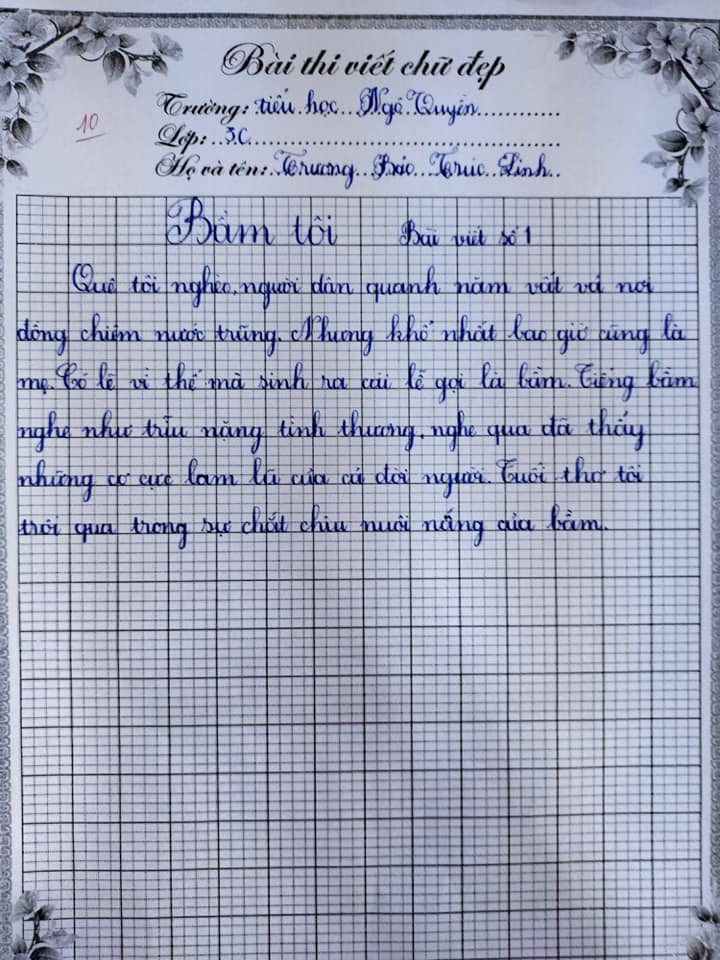 Bài thi viết chữ đẹp
Trường: tiểu học Ngô Quyền
10
Lớp: 3C
Họ và tên: Trương Bảo Trúc Linh
Bầm tôi Bài viết số 1
Quê tôi nghèo, người dân quanh năm vất vả nơi
đồng chiêm nước trũng. Nhưng khổ nhất bao giờ cũng là
mẹ. Có lẽ vì thế mà sinh ra cái lễ gọi là bầm. Tiếng bầm
nghe như trĩu nặng tình thương, nghe qua đã thấy
những cơ cực lam lũ của cả đời người. Tuổi thơ tôi
trôi qua trong sự chắt chiu nuôi nấng của bầm.